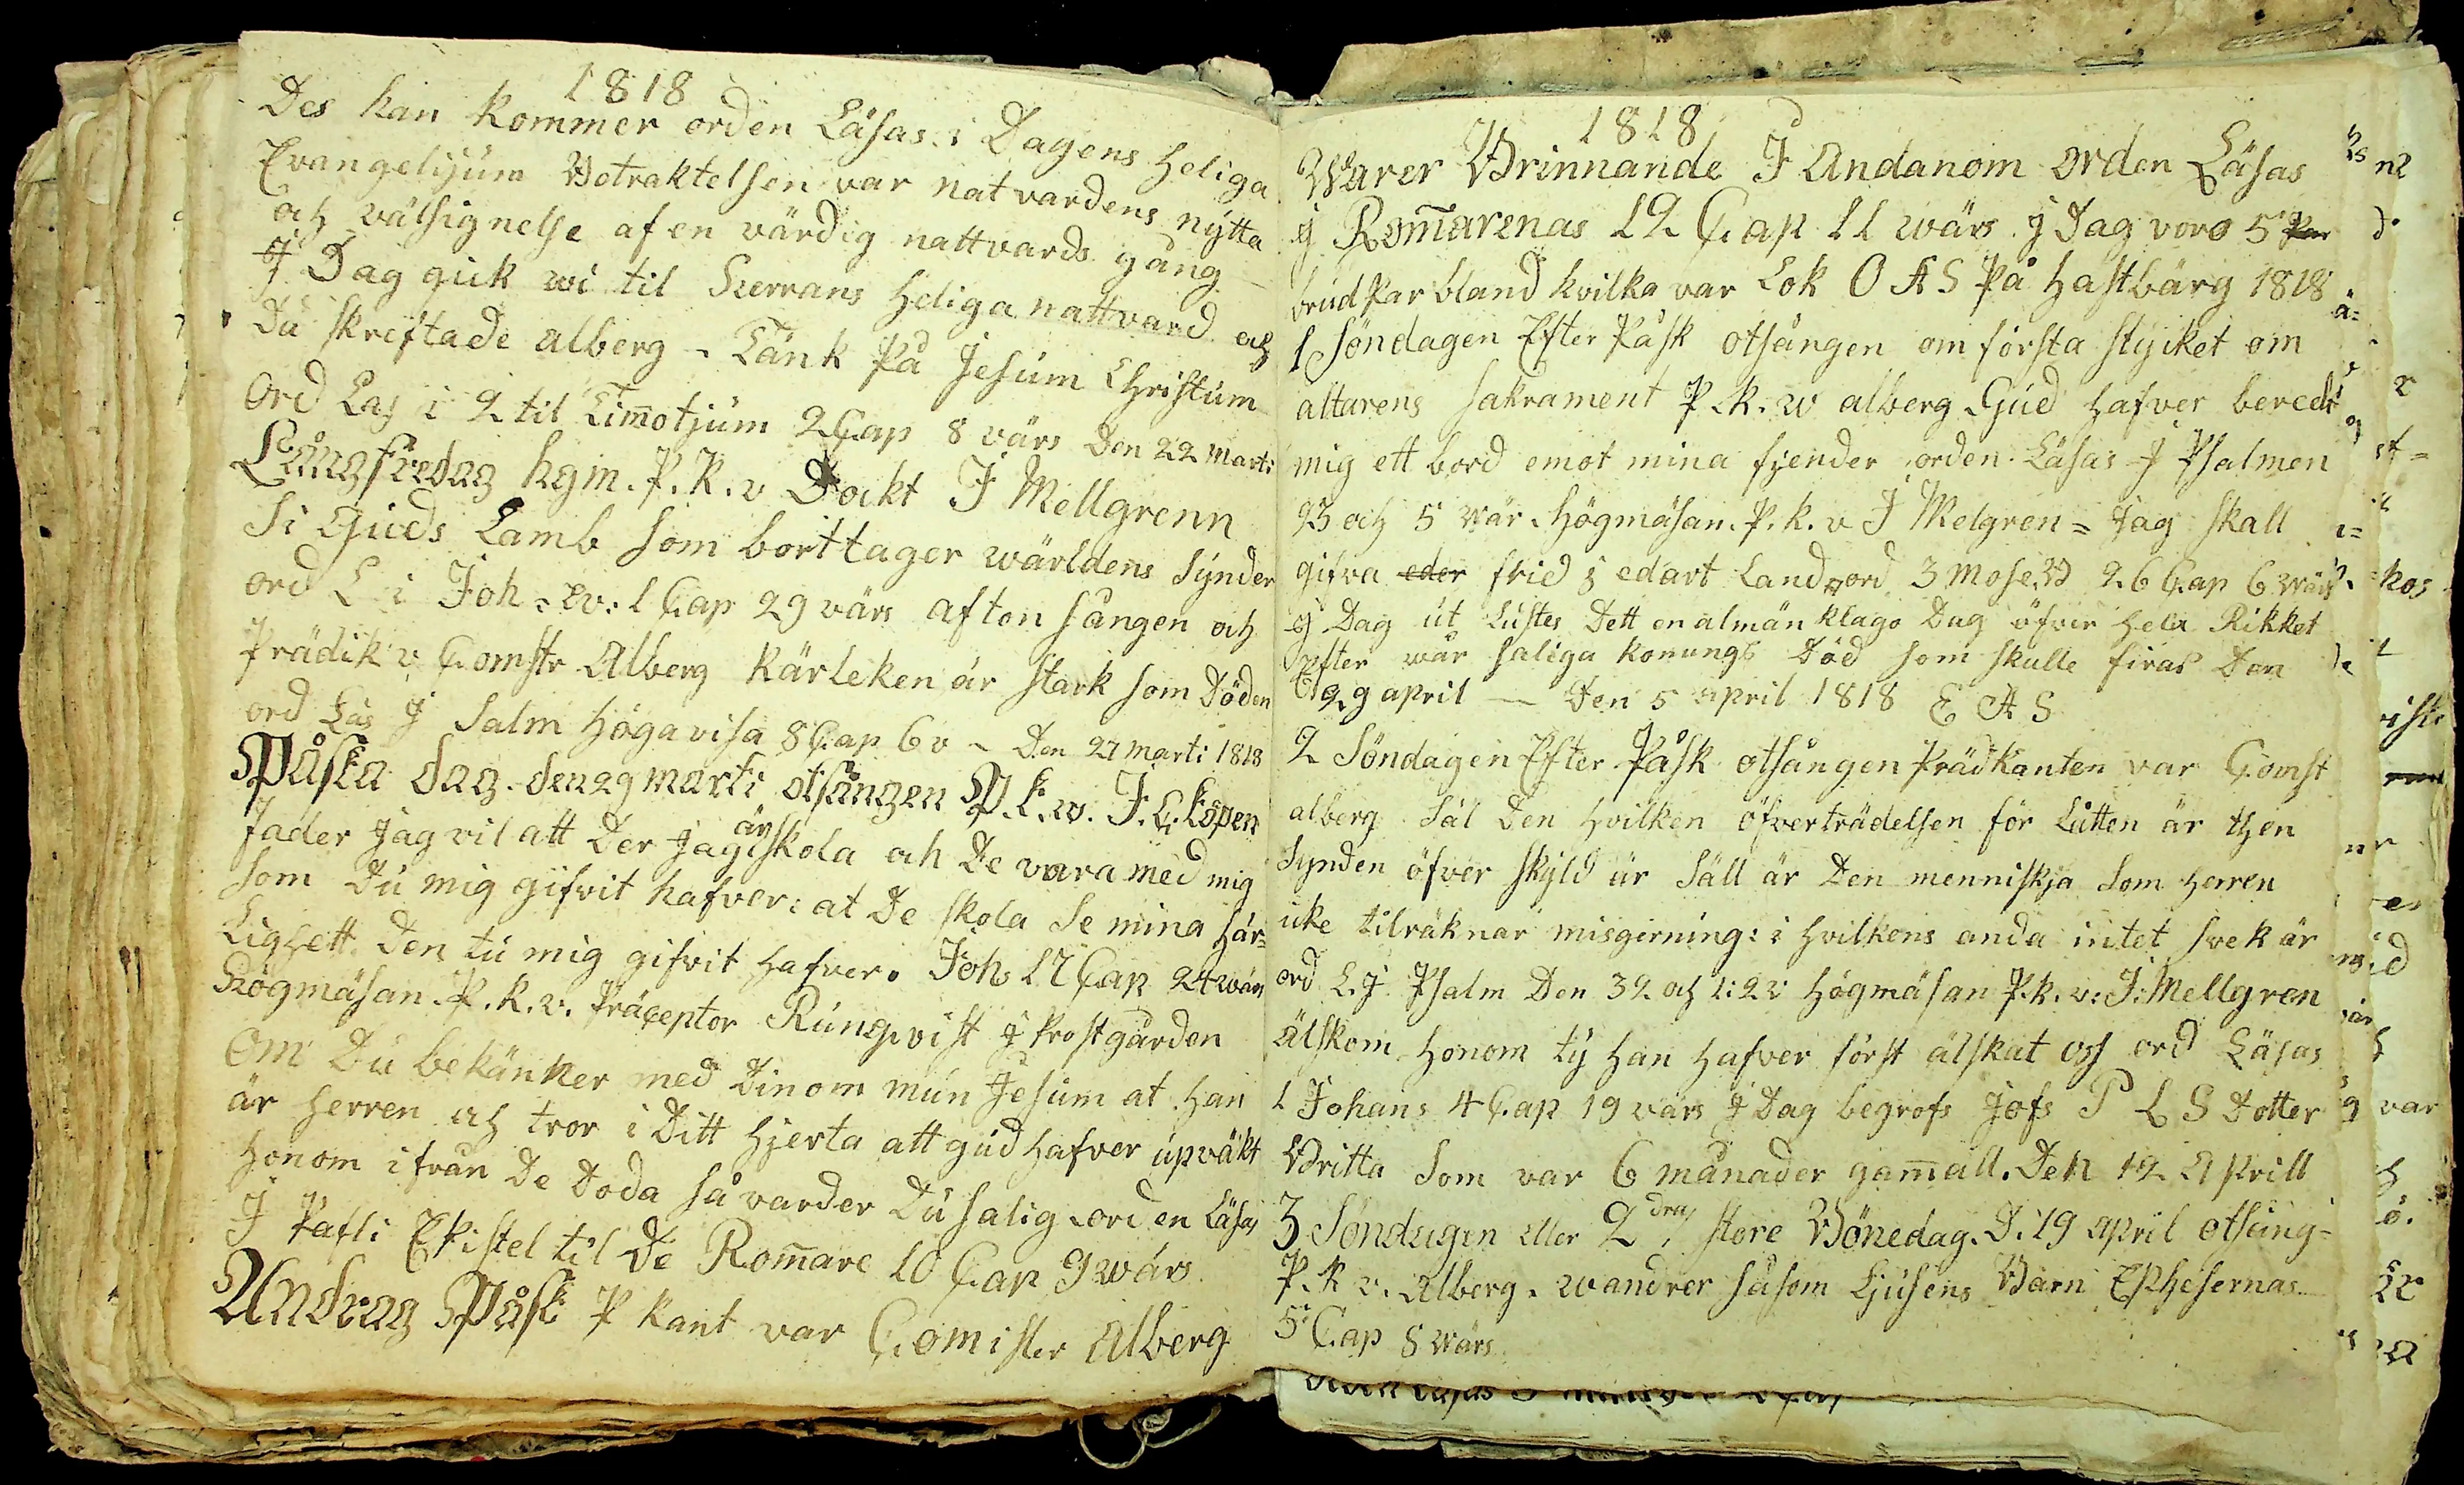 1818
Des han kommer orden Läsas i Dagens heliga
Evangelijum Botraktelsen var natvardens nytta
och välsignelse af en värdig nattvards gång
J Dag guk wi til Herrans heliga nattvard och
Då skreftade alberg - Tänk På Jesum Christum
Ord Las i 2 til Timotjum 2 Cap 8 värs Den 22 Marti
Långfredag hgm. P. K. v Dockt J Mellgrenn
Si Guds Lamb som borttager wärldens synder
ord L i Joh. ev: 1 Cap 29 värs afton sången och
Prädik v Comstr Alberg Kärleken är stark som Döden
ord Läs J Salm Högavisa 8 Cap 6 v - Den 27 marti 1818
Påska dag. den 29 marti otsången P. k. w. J. C. Köpen
fader Jag vil att Der Jag är skola och De vara med mig
som Du mig gifvit hafver: at De skola Se mina här=
Lighett Den tu mig gifvit hafver. Joh 17 Cap 24 wärs
Högmäsan. P. K. v. Präceptor Rungqvist J Prostgården
Om Du bekänner med Dinom mun Jesum at han
är herren och tror i Ditt hjerta att gud hafver upväkt
honom ifrån De Doda så varder Du salig orden Läsas
J Pafli Epistel til De Rom̄are 10 Cap 9 wärs
Andrag Påsk P kant var Comister Alberg
1818
Warer Brinnande J Andanom orden Läsas
J Rom̄arenas 12 Cap 11 wärs. J Dag voro 5 Par
brudPar bland hvilka var Lok O A S På hastbärg 1818
1 Söndagen Efter Påsk otsången om första styket om
altarens sakrament P. k. w alberg Gud hafver beredt
mig ett bord emot mina fjender orden Läsas J Psalmen
23 och 5 vär. Högmäsan. P. k. v J Melgren = Jag skall
gifva eder frid j edart Land ord 3 Mose B 26 Cap 6 wärs
J Dag ut Lustes Dett en almän klago Dag öfver hela Rikket
Efter wår saliga konungs Död som skulle firas Den
29 april — Den 5 april 1818 E A S
2 Söndagen Efter Påsk otsången Prädkanten var Comst
alberg Säl Den hvilken öfverträdelsen för Låtten är then
Synden öfver skyld är Säll är Den menniskja Som herren
icke tilräknar misgirning: i hvilkens anda intet svek är
ord L. J Psalm Den 32 och 1: 2 v Högmäsan P. k. v: J: Mellgren
älskom honom ty han hafver först älskat oss ord Läsas
1 Johans 4 Cap 19 värs J Dag begrofs Jofs P L S Dotter
Britta Som var 6 månader gam̄all. Den 12 Aprill
3 Söndagen eller 2dra store Bönedag. D. 19 april otsång=
P. K v. Alberg. wandrer såsom Ljusens Barn Ephesernas
5 Cap 8 wärs